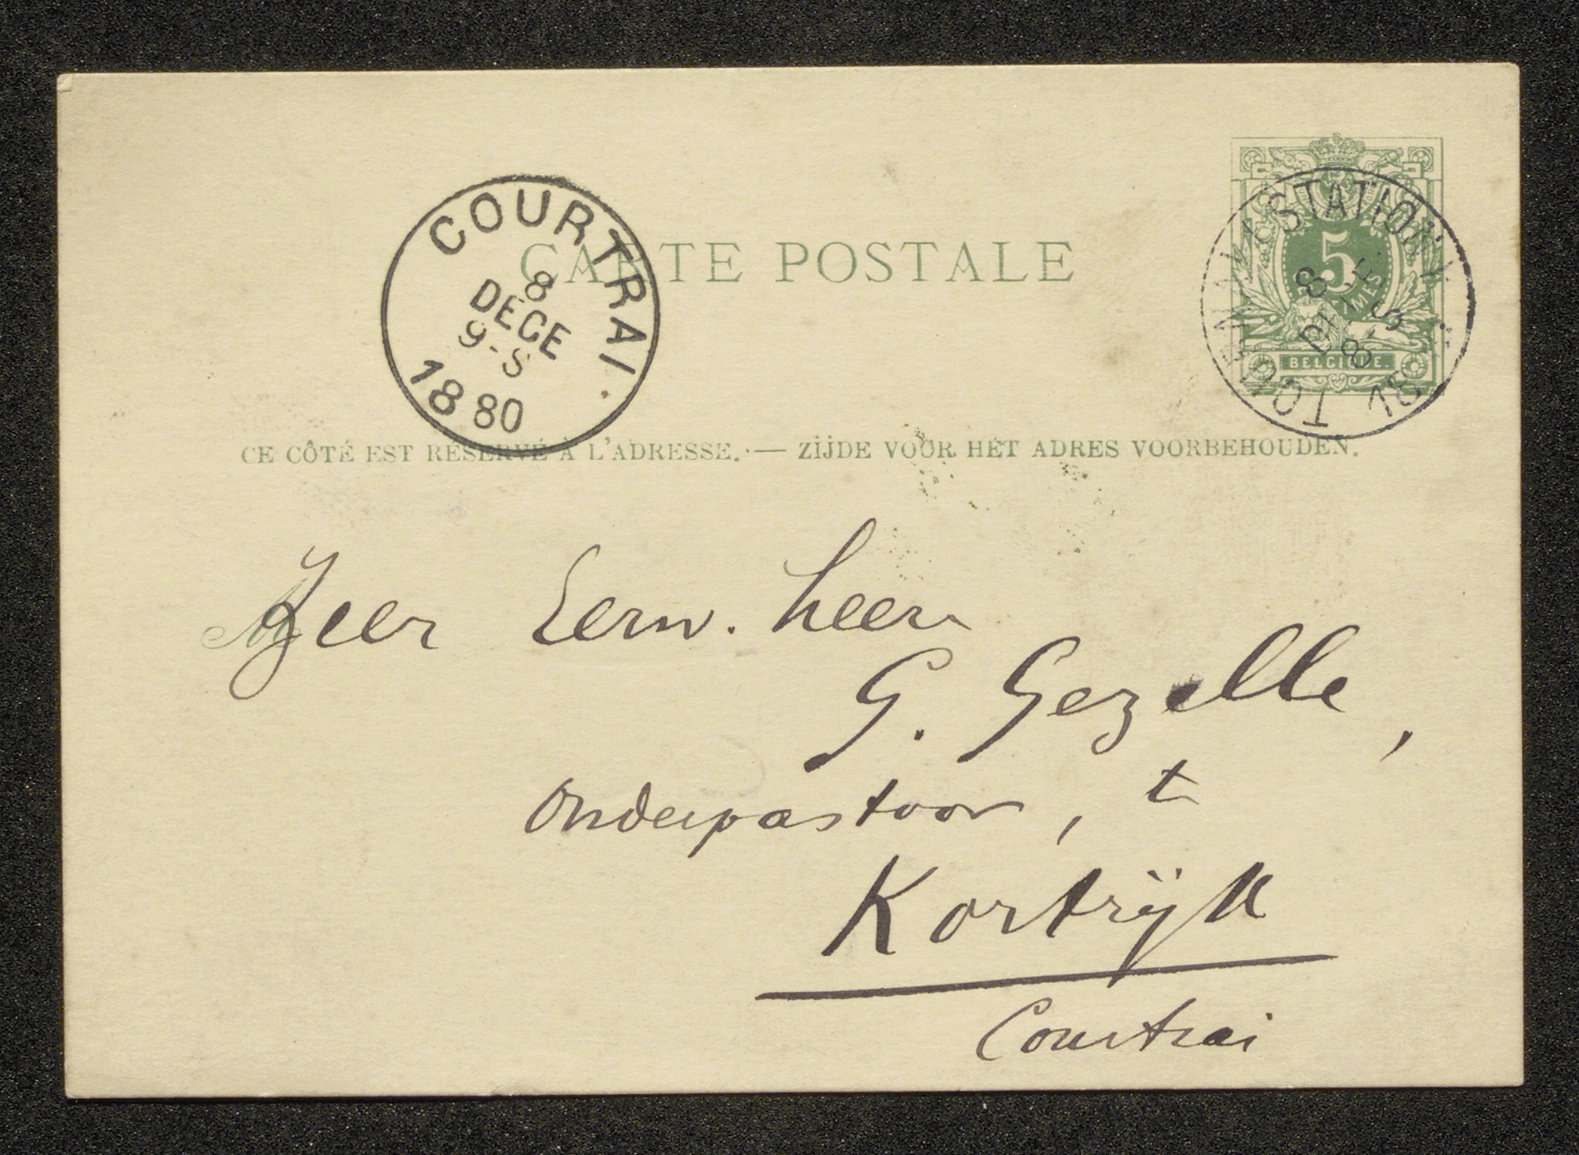 CARTE POSTALE
COURTRAI
8
DECE
9-S
1880
STATION
TOURNAI
8
5
BELGIQUE
CE CÔTÉ EST RÉSERVÉ À L'ADRESSE. — ZIJDE VOOR HET ADRES VOORBEHOUDEN.
Zeer Eerw. heer
G. Gezelle,
onderpastoor, te
Kortrijk
Courtrai